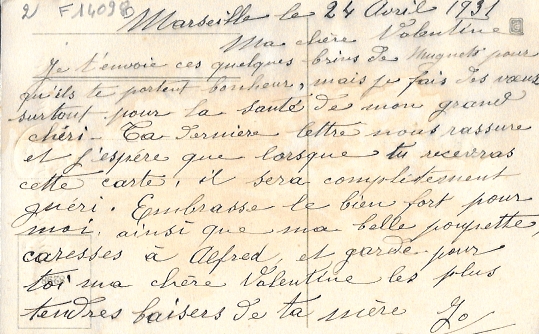 2 F14098
Marseille le 24 Avril 1931
Ma chère Valentine
Je t'envoie ces quelques brins de Muguet pour
qu'ils te portent bonheur, mais je fais des vœux
surtout pour la santé de mon grand
chéri. Ta dernière lettre nous rassure
et j'espère que lorsque tu recevras
cette carte, il sera complètement
guéri. Embrasse le bien fort pour
moi, ainsi que ma belle poupette,
caresses à Alfred, et garde pour
toi ma chère Valentine les plus
tendres baisers de ta mère Jo